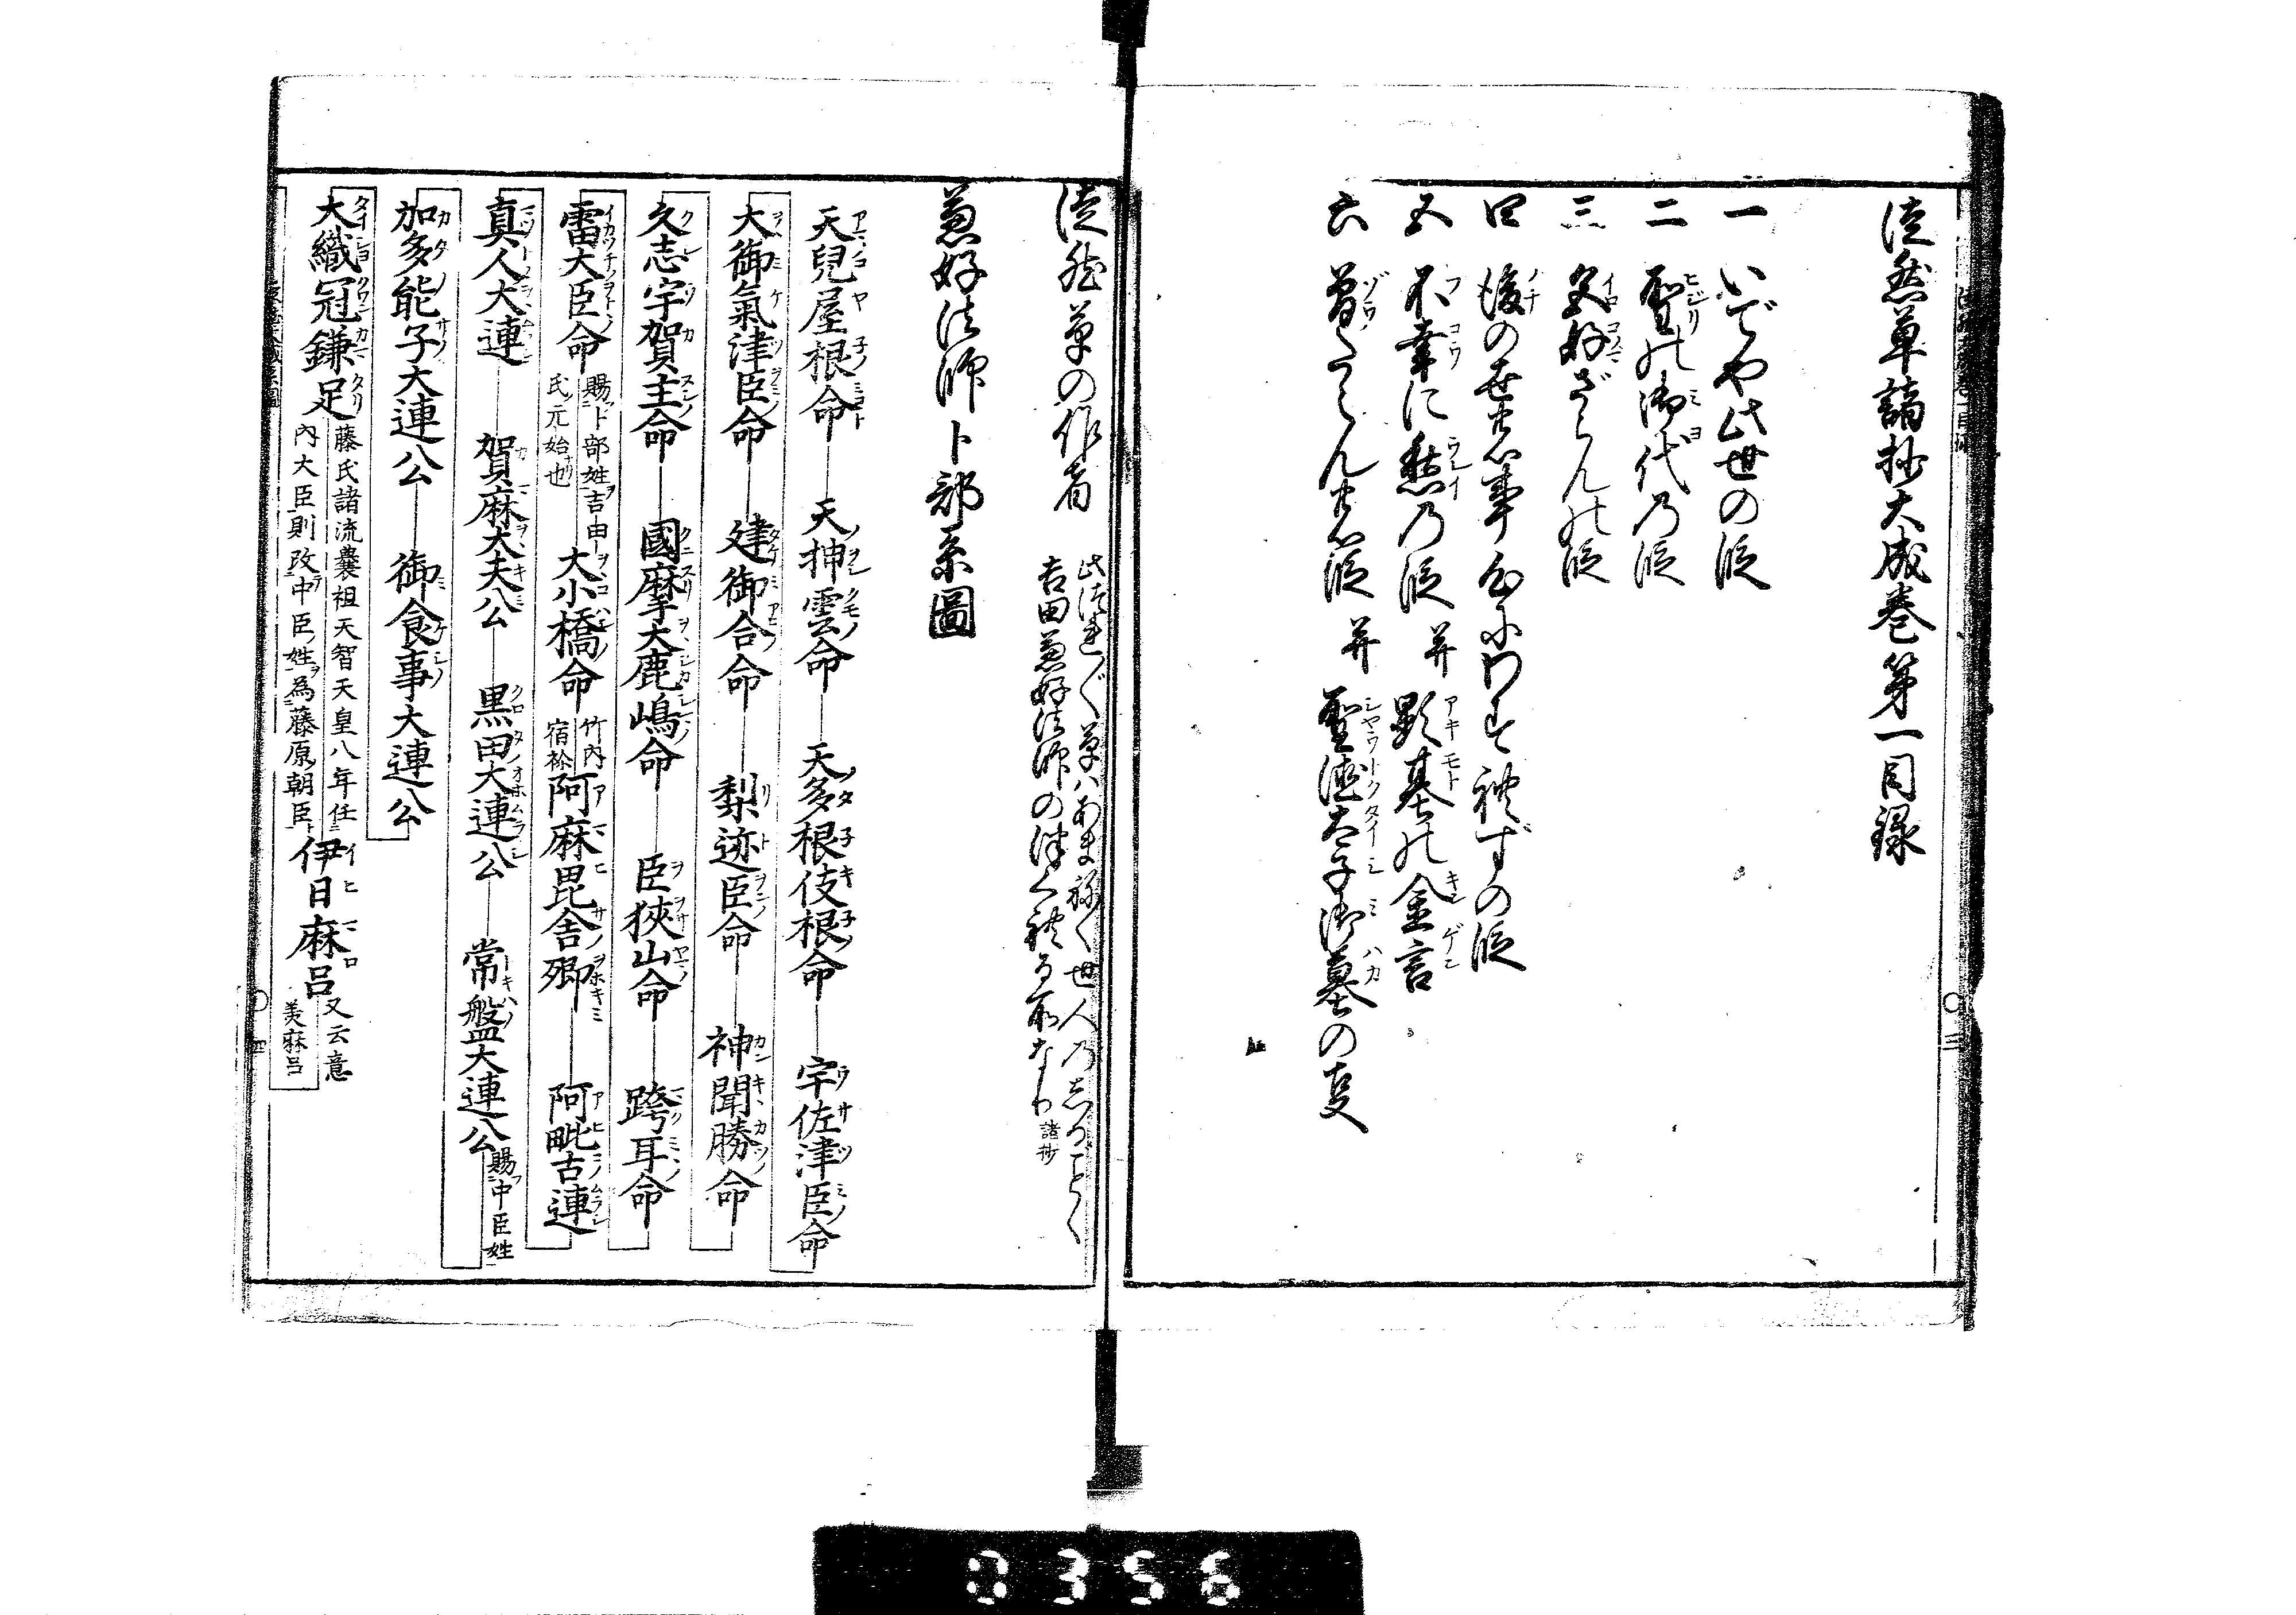 徒然草諸抄大成巻第一目録
一 いでや此世の段
二 聖の御代乃段
三 色好ざらんの段
四 後の世の事心にわすれずの段
五 不幸に愁乃段 并 顕基の金言
六 前ノ
聖徳太子御墓の事
徒然草の作者
此つれ〴〵草ハあまねく世人乃しるごとく
吉田兼好法師の
諸抄
兼好法師卜部系圖
天兒屋根命 天押雲命 天多根伎根命 宇佐津臣命
大御氣津臣命 建御合命 梨迹臣命 神聞勝命
久志宇賀主命 國摩大鹿嶋命 臣狹山命 跨耳命
雷大臣命 賜卜部姓吉由 氏元始也 大小橋命 竹内宿祢 阿麻毘舎卿 阿毗古連
真人大連 賀麻大夫公 黒田大連公 常盤大連公 賜中臣姓
加多能子大連公 御食事大連公
大織冠鎌足 藤氏諸流曩祖天智天皇八年任 内大臣則改中臣姓為藤原朝臣 伊日麻呂 又云意 美麻呂
三
四
0356